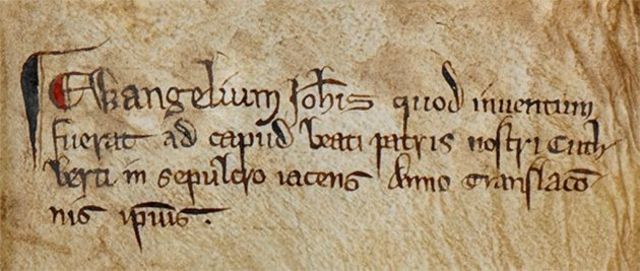 Ewangelium Joh̅is quod inventum
fuerat ad capud beati patris nostri Cuth
berti in sepulcro iacens Anno translacō
nis ip̅ius.